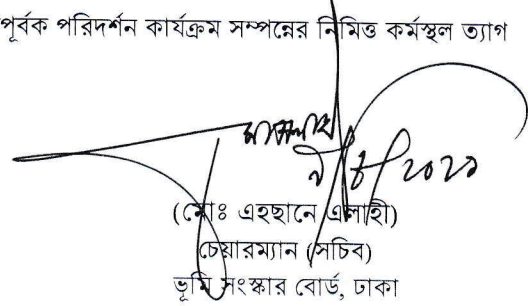 পূর্বক পরিদর্শন কার্যক্রম সম্পন্নের নিমিত্ত কর্মস্থল ত্যাগ
(মোঃ এহছানে এলাহী)
চেয়ারম্যান (সচিব)
ভূমি সংস্কার বোর্ড, ঢাকা